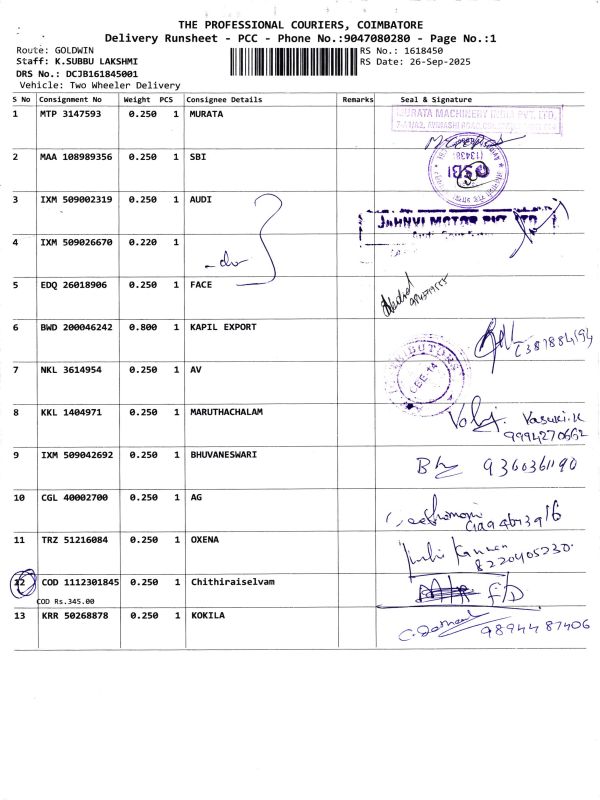 THE PROFESSIONAL COURIERS, COIMBATORE
Delivery Runsheet - PCC - Phone No.:9047080280 - Page No.:1
Route: GOLDWIN RS No.: 1618450
Staff: K.SUBBU LAKSHMI RS Date: 26-Sep-2025
DRS No.: DCJB161845001
Vehicle: Two Wheeler Delivery
S No Consignment No Weight PCS Consignee Details Remarks Seal & Signature
1 MTP 3147593 0.250 1 MURATA
MURATA MACHINERY INDIA PVT. LTD.
2 MAA 108989356 0.250 1 SBI
SBI
3 IXM 509002319 0.250 1 AUDI
JAHNVI MOTOR PVT LTD
4 IXM 509026670 0.220 1
-do-
5 EDQ 26018906 0.250 1 FACE
6 BWD 200046242 0.800 1 KAPIL EXPORT
7 NKL 3614954 0.250 1 AV
CBE-14
8 KKL 1404971 0.250 1 MARUTHACHALAM
Vasuki.K
9994270662
9 IXM 509042692 0.250 1 BHUVANESWARI
9360361190
10 CGL 40002700 0.250 1 AG
11 TRZ 51216084 0.250 1 OXENA
8220405230
12 COD 1112301845 0.250 1 Chithiraiselvam
COD Rs.345.00
F/D
13 KRR 50268878 0.250 1 KOKILA
98944 87406